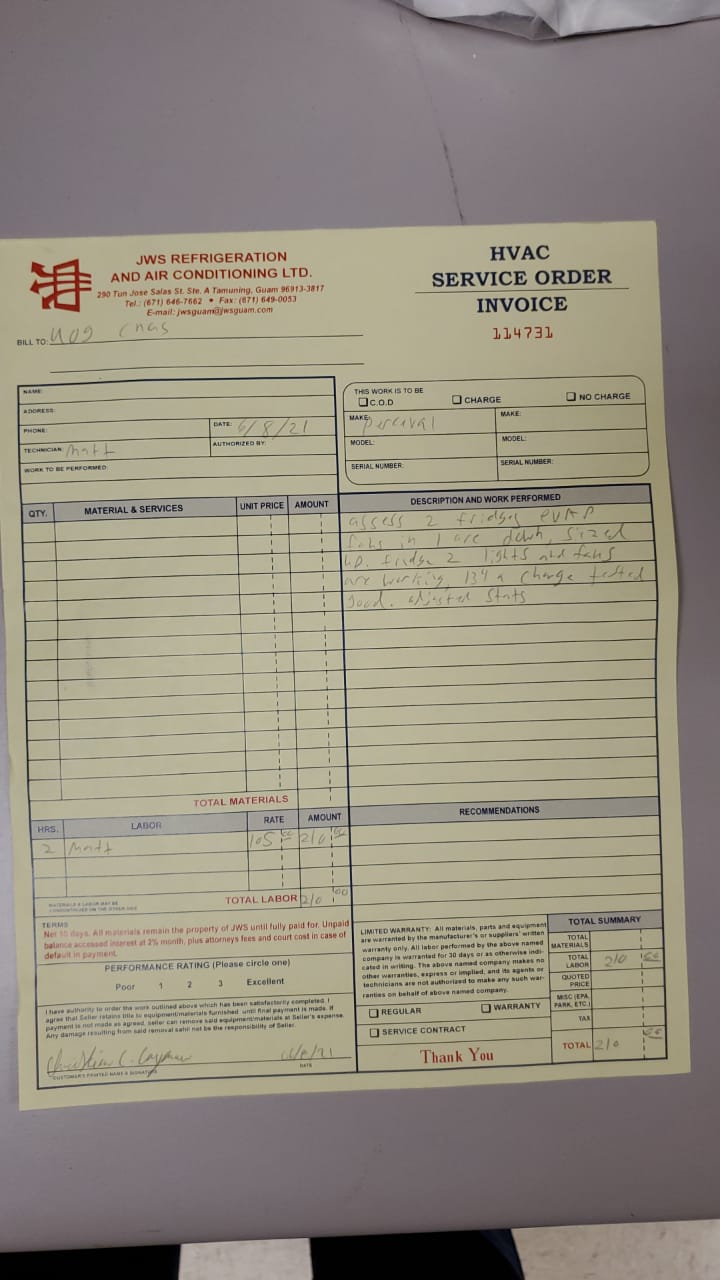 JWS REFRIGERATION
AND AIR CONDITIONING LTD.
290 Tun Jose Salas St. Ste. A Tamuning, Guam 96913-3817
Tel.: (671) 646-7662 • Fax: (671) 649-0053
E-mail: jwsguam@jwsguam.com
HVAC
SERVICE ORDER
INVOICE
114731
BILL TO: UOG CNAS
NAME:
ADDRESS:
PHONE:
DATE: 6/8/21
TECHNICIAN: Matt
AUTHORIZED BY:
WORK TO BE PERFORMED:
THIS WORK IS TO BE
C.O.D CHARGE NO CHARGE
MAKE: Percival MAKE:
MODEL: MODEL:
SERIAL NUMBER: SERIAL NUMBER:
QTY. MATERIAL & SERVICES UNIT PRICE AMOUNT
DESCRIPTION AND WORK PERFORMED
assess 2 fridges EVAP
fans in 1 are down, sized
up. fridge 2 lights and fans
are working, 134a charge tested
good. adjusted stats
TOTAL MATERIALS
HRS. LABOR RATE AMOUNT
2 Matt 105 00 210 00
MATERIALS & LABOR MAY BE
CONTINUED ON THE OTHER SIDE
TOTAL LABOR 210 00
RECOMMENDATIONS
TERMS
Net 10 days. All materials remain the property of JWS until fully paid for. Unpaid
balance accessed interest at 2% month, plus attorneys fees and court cost in case of
default in payment.
PERFORMANCE RATING (Please circle one)
Poor 1 2 3 Excellent
I have authority to order the work outlined above which has been satisfactorily completed. I
agree that Seller retains title to equipment/materials furnished until final payment is made. If
payment is not made as agreed, seller can remove said equipment/materials at Seller's expense.
Any damage resulting from said removal sahll not be the responsibility of Seller.
6/8/21
CUSTOMER'S PRINTED NAME & SIGNATURE DATE
LIMITED WARRANTY: All materials, parts and equipment
are warranted by the manufacturer's or suppliers' written
warranty only. All labor performed by the above named
company is warranted for 30 days or as otherwise indi-
cated in writing. The above named company makes no
other warranties, express or implied, and its agents or
technicians are not authorized to make any such war-
ranties on behalf of above named company.
REGULAR WARRANTY
SERVICE CONTRACT
Thank You
TOTAL SUMMARY
TOTAL MATERIALS
TOTAL LABOR 210 00
QUOTED PRICE
MISC (EPA, PARK, ETC.)
TAX
TOTAL 210 00